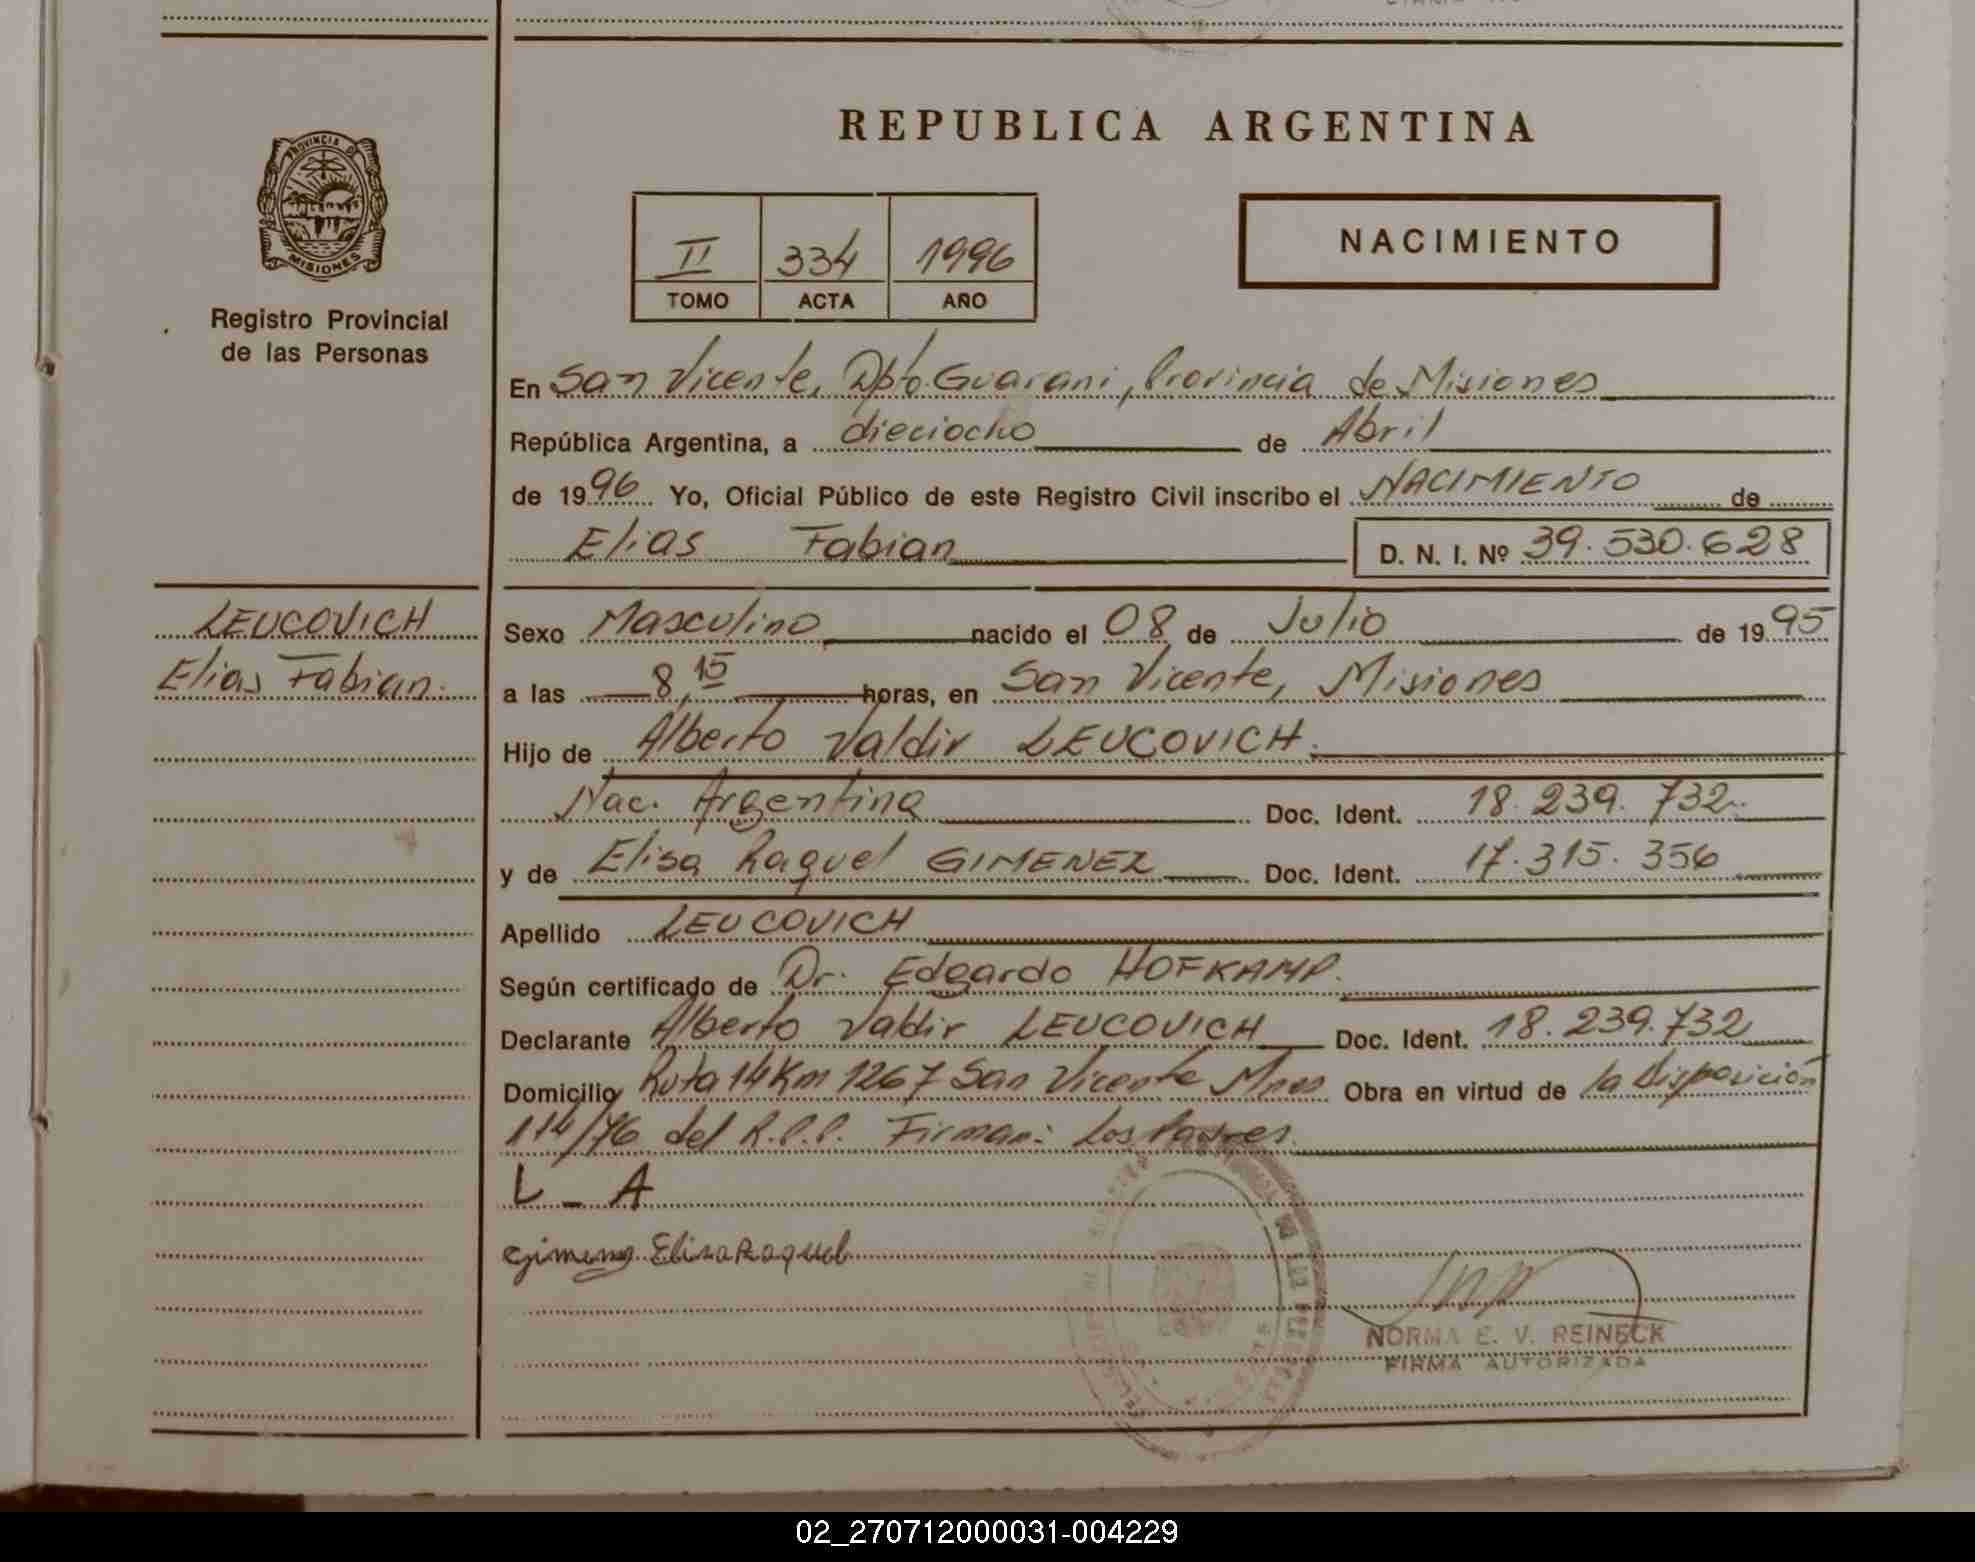 REPUBLICA ARGENTINA
PROVINCIA DE
MISIONES
Registro Provincial
de las Personas
II 334 1996
TOMO ACTA AÑO
NACIMIENTO
En San Vicente, Dpto. Guarani, Provincia de Misiones
República Argentina, a dieciocho de Abril
de 1996 Yo, Oficial Público de este Registro Civil inscribo el NACIMIENTO de
Elias Fabian D. N. I. Nº 39.530.628
LEUCOVICH
Elias Fabian.
Sexo Masculino nacido el 08 de Julio de 1995
a las 8,15 horas, en San Vicente, Misiones
Hijo de Alberto Valdir LEUCOVICH.
Nac. Argentina Doc. Ident. 18.239.732
y de Elisa Raquel GIMENEZ Doc. Ident. 17.315.356
Apellido LEUCOVICH
Según certificado de Dr. Edgardo HOFKAMP.
Declarante Alberto Valdir LEUCOVICH Doc. Ident. 18.239.732
Domicilio Ruta 14 Km 1267 San Vicente Mnes Obra en virtud de la Disposición
114/76 del R.P.P. Firman: Los Padres.
L - A
Gimenez Elisa Raquel
NORMA E. V. REINECK
FIRMA AUTORIZADA
02_270712000031-004229